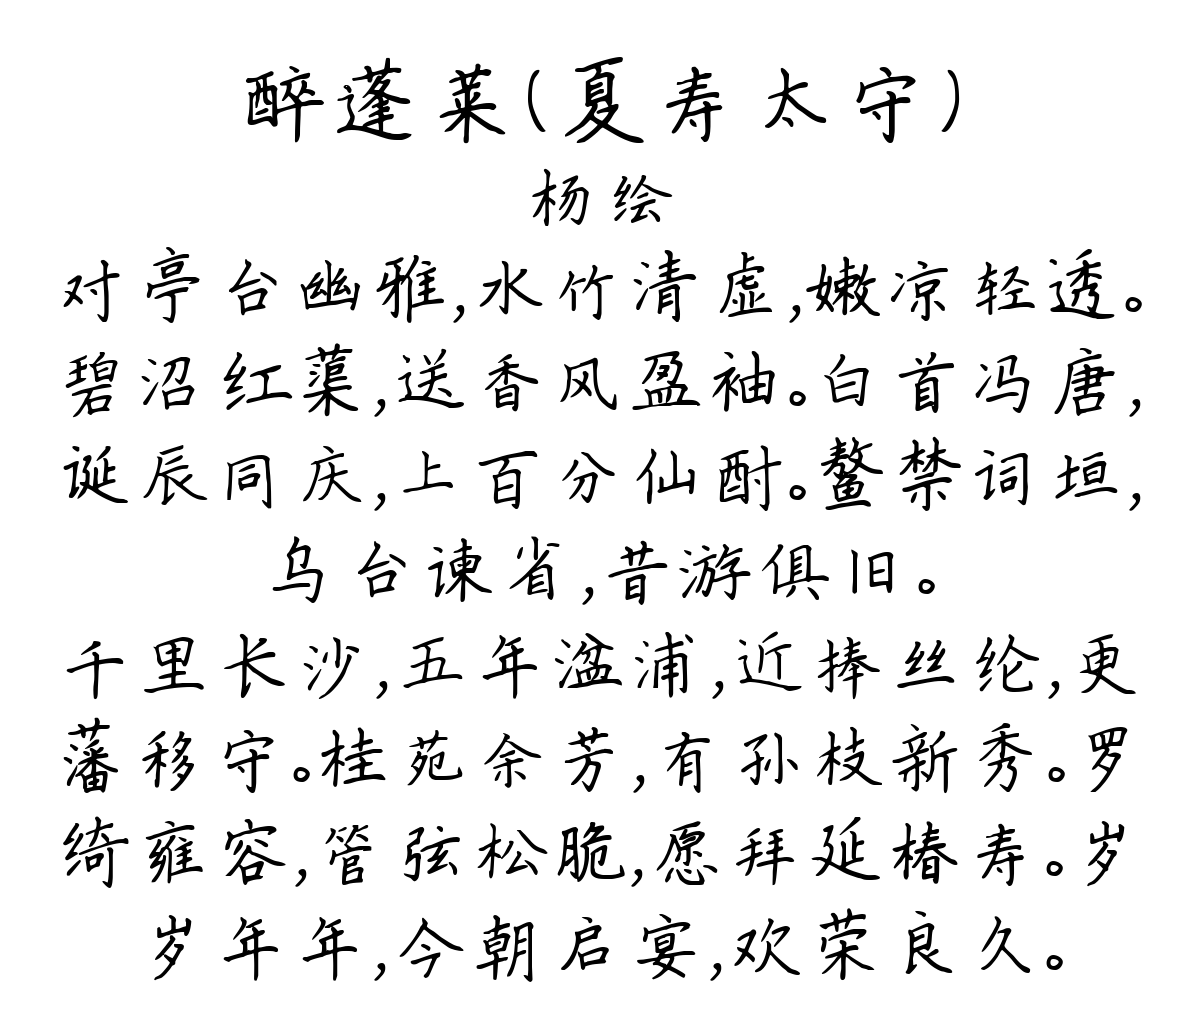 醉蓬莱(夏寿太守)
杨绘
对亭台幽雅,水竹清虚,嫩凉轻透。
碧沼红蕖,送香风盈袖。白首冯唐,
诞辰同庆,上百分仙酎。鳌禁词垣,
乌台谏省,昔游俱旧。
千里长沙,五年湓浦,近捧丝纶,更
藩移守。桂苑余芳,有孙枝新秀。罗
绮雍容,管弦松脆,愿拜延椿寿。岁
岁年年,今朝启宴,欢荣良久。